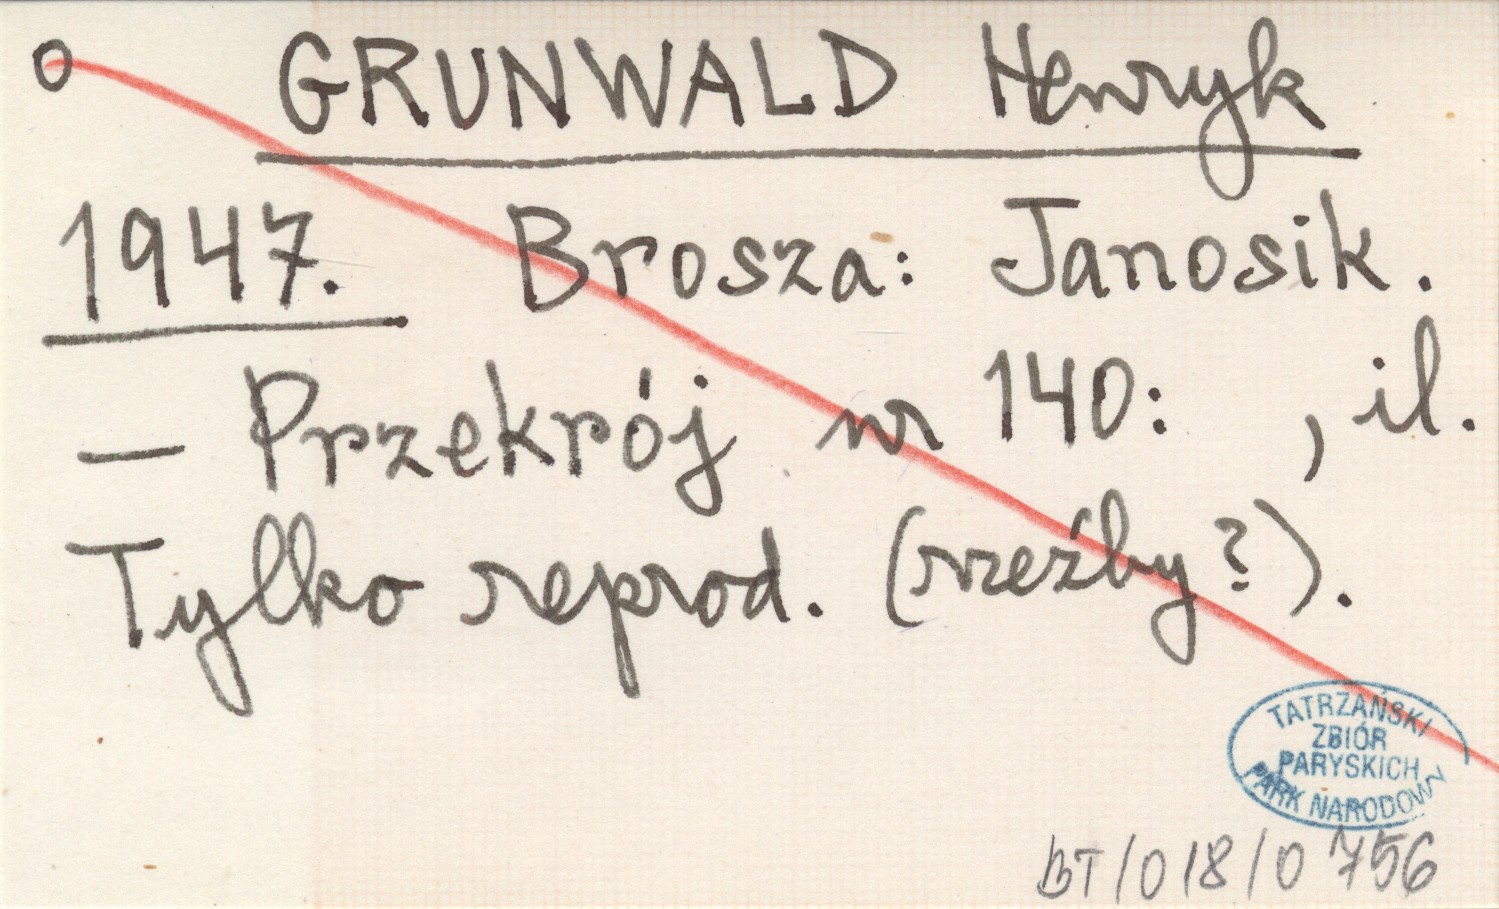 O GRUNWALD Henryk
1947. Brosza: Janosik.
— Przekrój nr 140: , il.
Tylko reprod. (rzeźby?).
TATRZAŃSKI
ZBIÓR
PARYSKICH
PARK NARODOWY
BT/018/0756